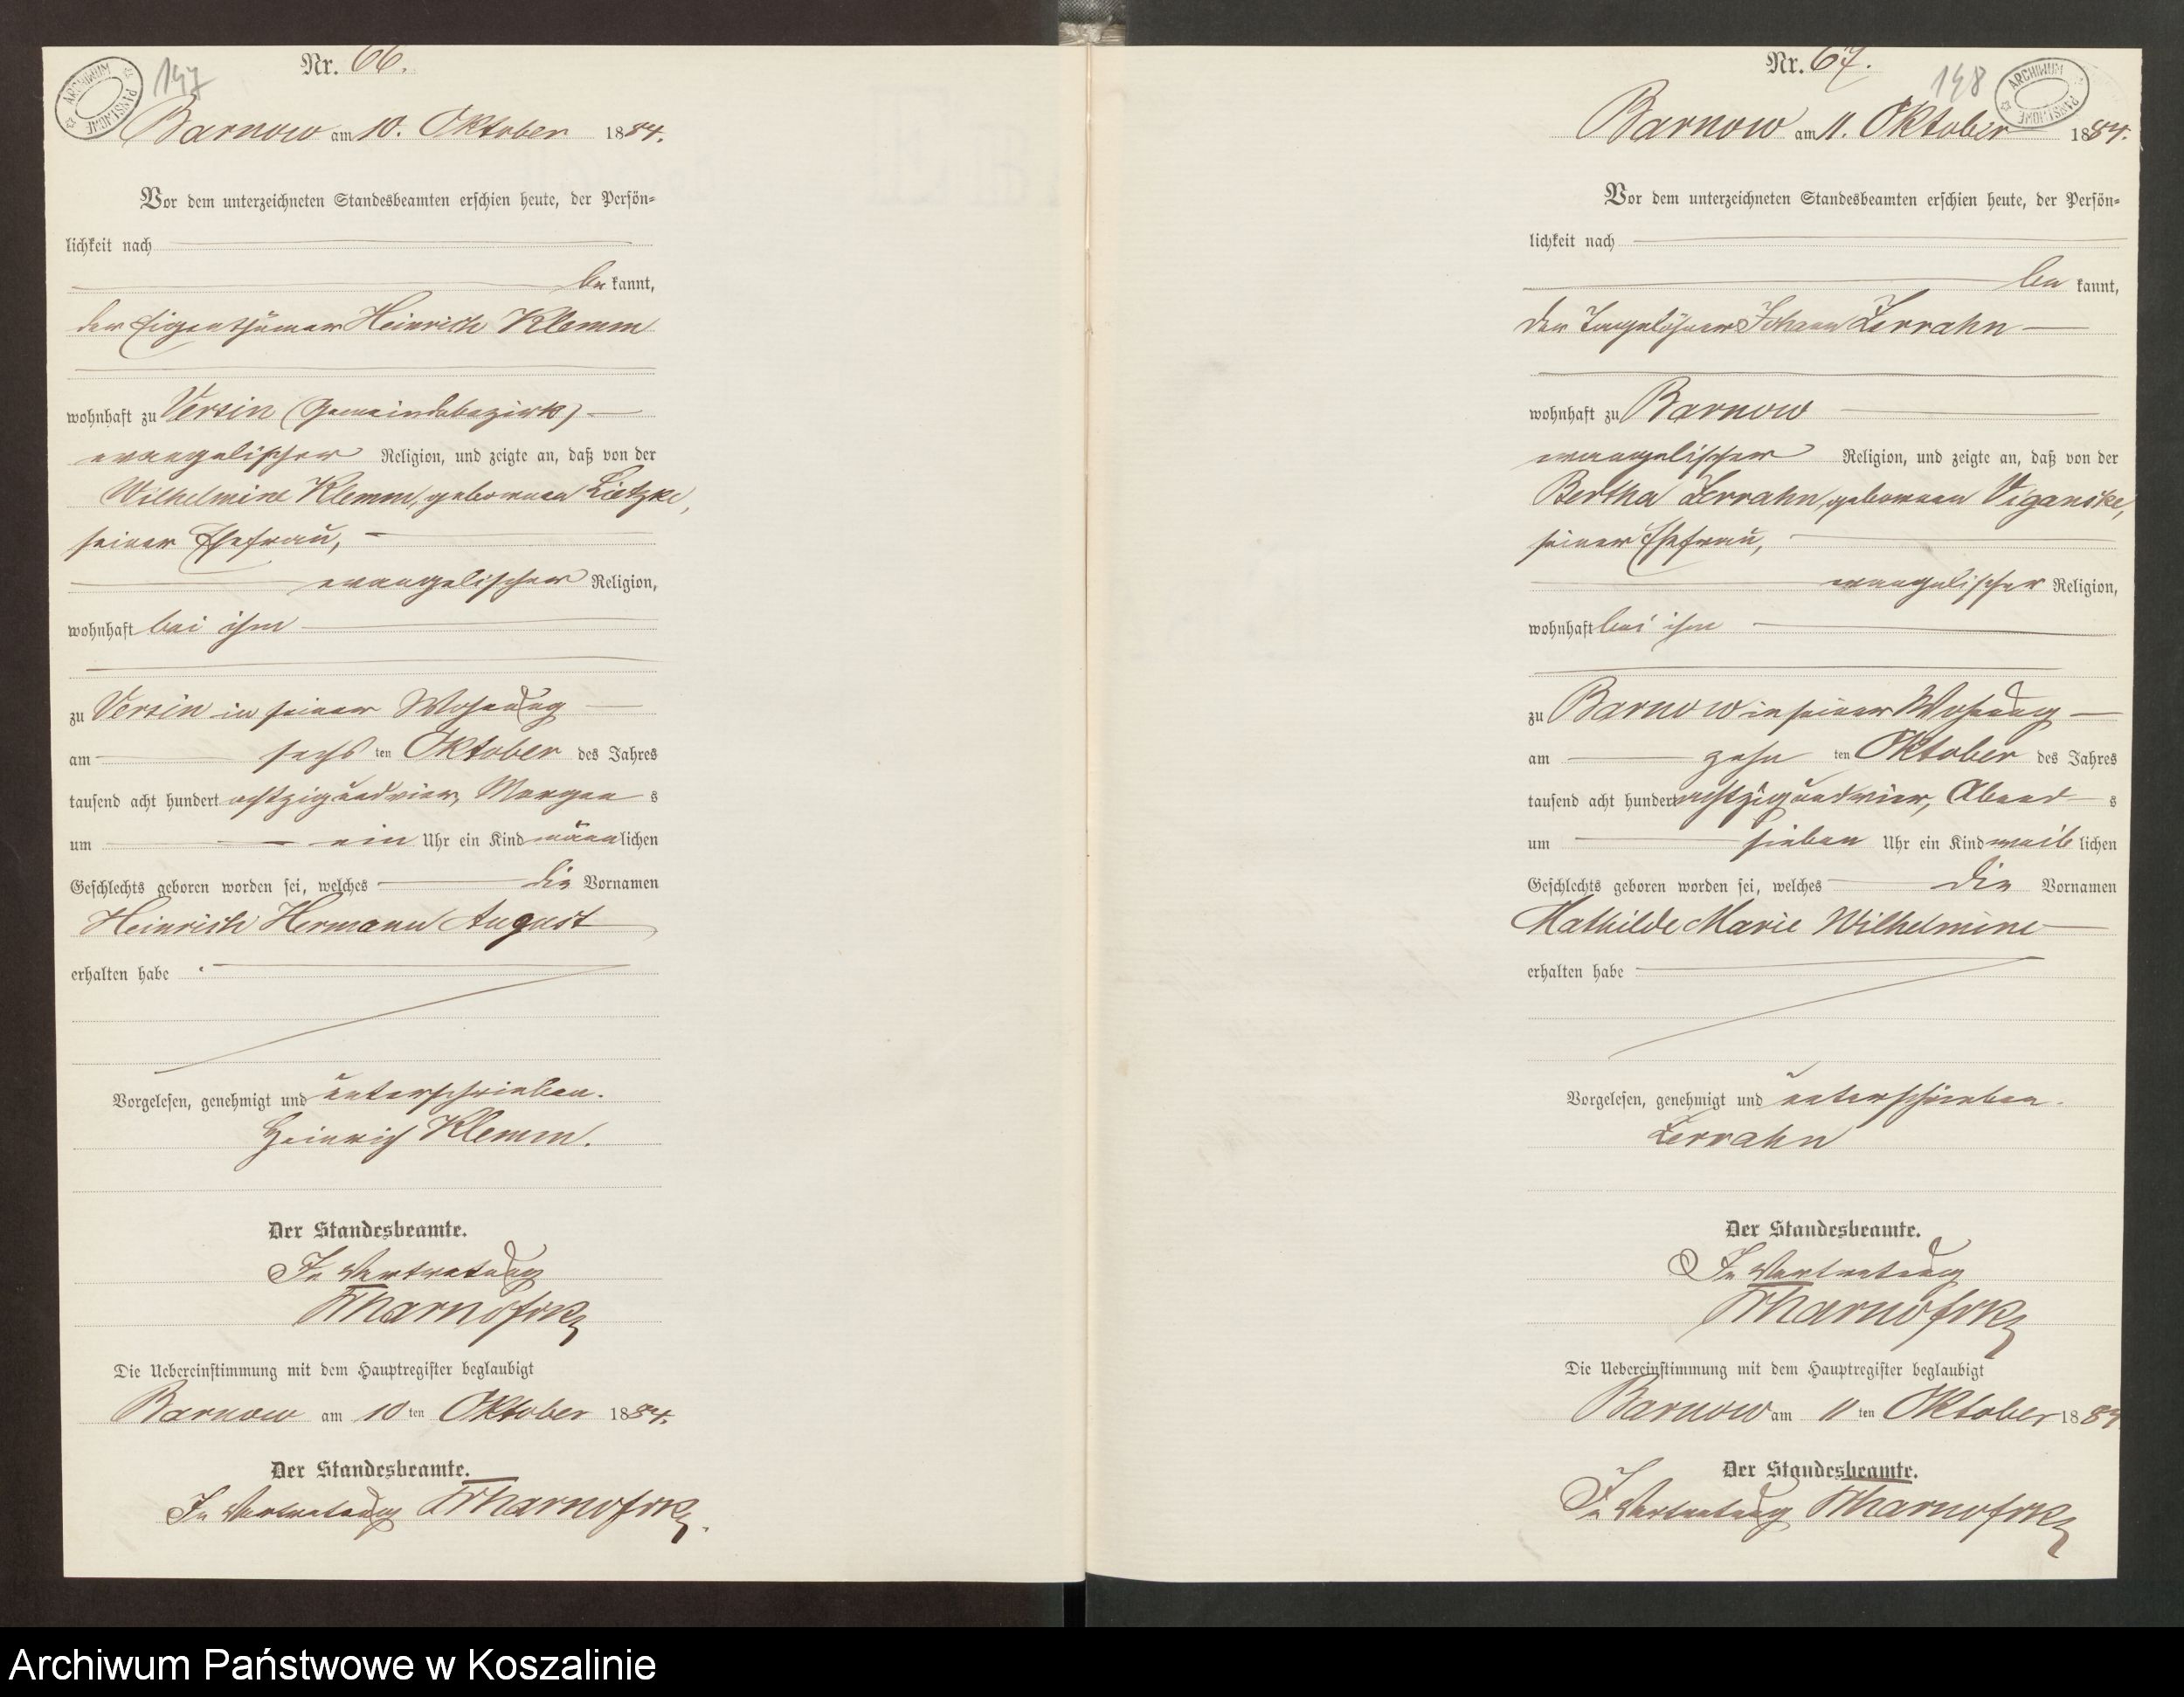 147
ARCHIWUM PAŃSTWOWE
Nr. 66.
Barnow am 10. Oktober 1884.
Vor dem unterzeichneten Standesbeamten erschien heute, der Persön=
lichkeit nach
be kannt,
der Eigenthümer Heinrich Klemm
wohnhaft zu Versin (Gemeindebezirk)
evangelischer Religion, und zeigte an, daß von der
Wilhelmine Klemm, geborenen Lietzke,
seiner Ehefrau,
evangelischer Religion,
wohnhaft bei ihm
zu Versin in seiner Wohnung
am sechs ten Oktober des Jahres
tausend acht hundert achtzig und vier, Morgen s
um ein Uhr ein Kind männlichen
Geschlechts geboren worden sei, welches die Vornamen
Heinrich Hermann August
erhalten habe
Vorgelesen, genehmigt und unterschrieben.
Heinrich Klemm.
Der Standesbeamte.
In Vertretung
Die Uebereinstimmung mit dem Hauptregister beglaubigt
Barnow am 10 ten Oktober 1884.
Der Standesbeamte.
In Vertretung
Nr. 67.
148
ARCHIWUM PAŃSTWOWE
Barnow am 11. Oktober 1884.
Vor dem unterzeichneten Standesbeamten erschien heute, der Persön=
lichkeit nach
be kannt,
der Tagelöhner Johann Zerrahn
wohnhaft zu Barnow
evangelischer Religion, und zeigte an, daß von der
Bertha Zerrahn, geborenen Viganske,
seiner Ehefrau,
evangelischer Religion,
wohnhaft bei ihm
zu Barnow in seiner Wohnung
am zehn ten Oktober des Jahres
tausend acht hundert achtzig und vier, Abend s
um sieben Uhr ein Kind weib lichen
Geschlechts geboren worden sei, welches die Vornamen
Mathilde Marie Wilhelmine
erhalten habe
Vorgelesen, genehmigt und unterschrieben.
Zerrahn
Der Standesbeamte.
In Vertretung
Die Uebereinstimmung mit dem Hauptregister beglaubigt
Barnow am 11 ten Oktober 1884
Der Standesbeamte.
In Vertretung
Archiwum Państwowe w Koszalinie